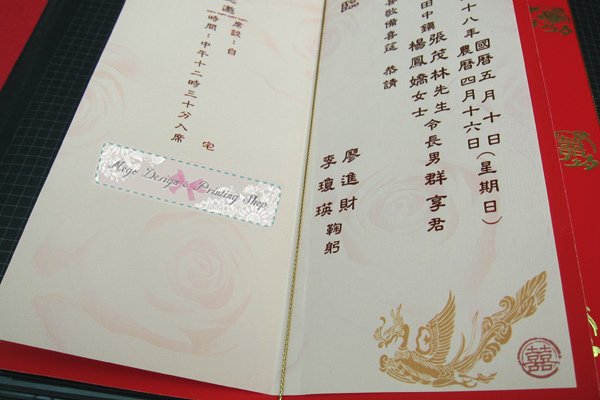 國曆五月十日(星期日)
十八年農曆四月十六日
田中鎮張茂林先生令長男群享君
楊鳳嬌女士
喜敬備喜筵 恭請
臨
廖進財
李瓊瑛鞠躬
席設:自 宅
時間:中午十二時三十分入席
Moge Design & Printing Shop
囍